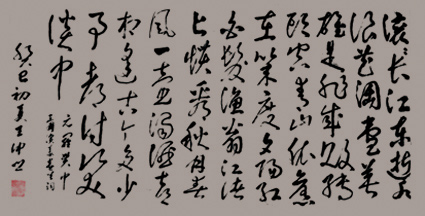 滚滚长江东逝水
浪花淘尽英
雄是非成败转
头空青山依旧
在几度夕阳红
白发渔翁江渚
上惯看秋月春
风一壶浊酒喜
相逢古今多少
事都付笑
谈中
癸巳初夏